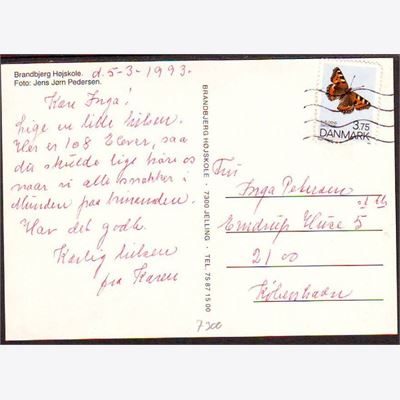 Brandbjerg Højskole.
Foto: Jens Jørn Pedersen.
d. 5-3-1993.
Kære Inga!
Lige en lille hilsen.
Her er 108 Elever, saa
du skulde lige høre os
naar vi alle snakker i
Munden paa hinanden.
Hav det godt.
Kærlig hilsen
fra Karen
BRANDBJERG HØJSKOLE · 7300 JELLING · TEL. 75 87 15 00
3.75
DANMARK
Fru
Inga Petersen
Emdrup Huse 5
2100
København
7300